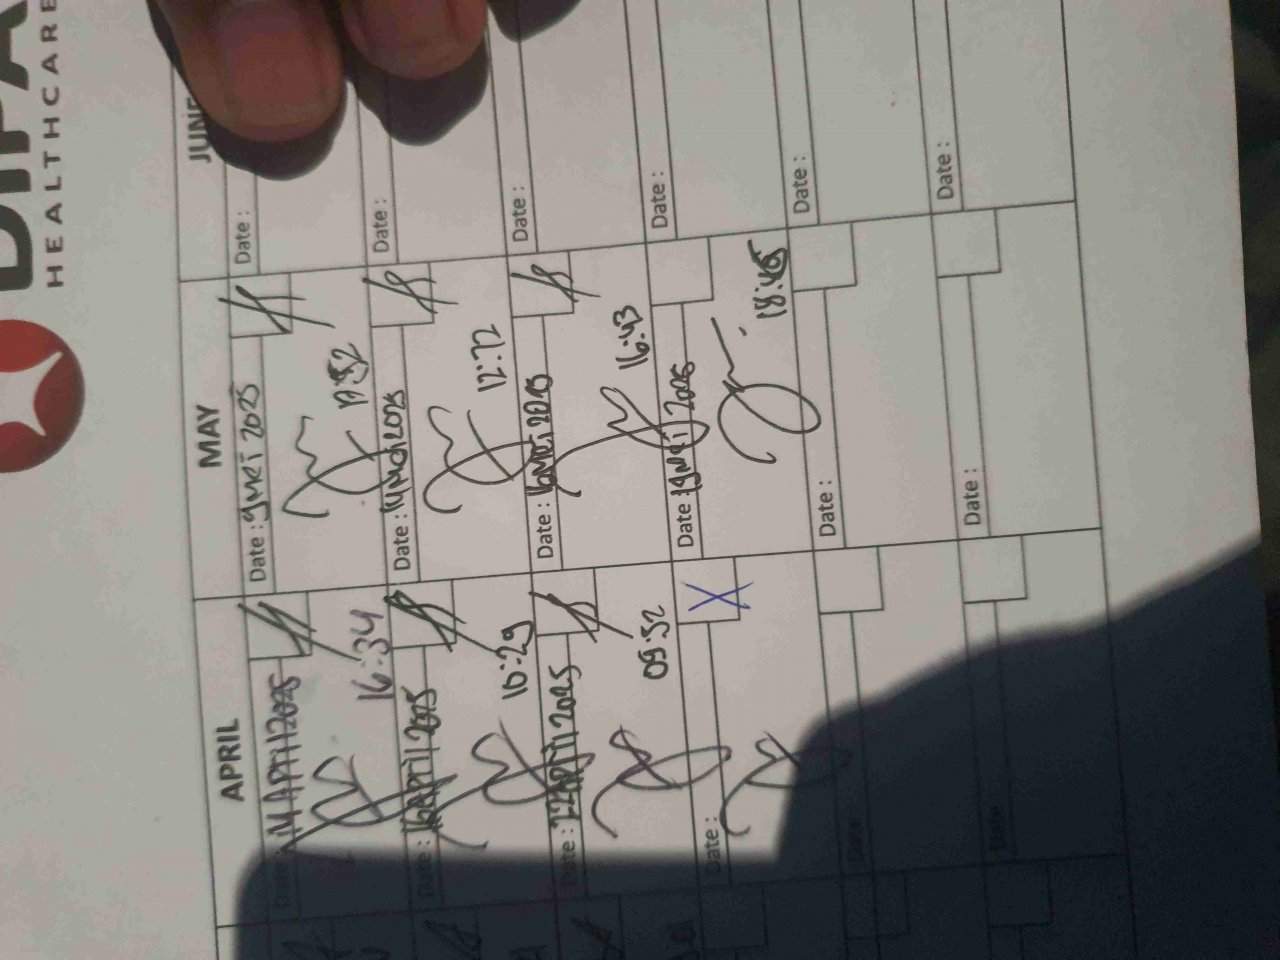 HEALTHCARE
APRIL
MAY
JUNE
Date : 9 Mei 2025
Date :
16:34
Date : 16 April 2025
Date : 14 Mei 2025
12:12
Date :
16:29
Date : 22 April 2025
Date : 16 Mei 2025
16:43
Date :
09:52
Date :
X
Date : 19 Mei 2025
18:45
Date :
Date
Date :
Date :
Date
Date :
Date :